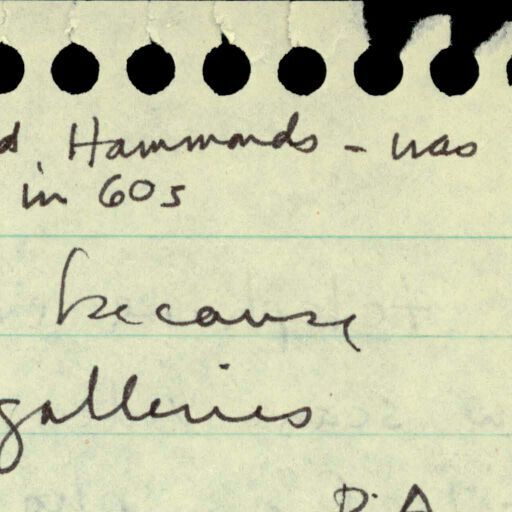 d Hammonds - was
in 60s
because
galleries
P.A